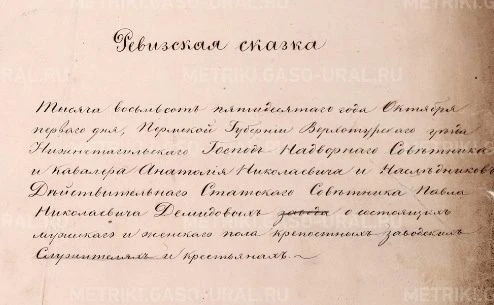 Ревизская сказка
Тысяча восемьсотъ пятидесятаго года Октября
перваго дня, Пермской Губерніи Верхотурскаго уѣзда
Нижнетагильскаго Господъ Надворнаго Совѣтника
и Кавалера Анатолія Николаевича и Наслѣдниковъ
Дѣйствительнаго Статскаго Совѣтника Павла
Николаевича Демидовыхъ завода о состоящихъ
мужескаго и женскаго пола крепостныхъ заводскихъ
Служителяхъ и крестьянахъ.
METRIKI.GASO-URAL.RU
METRIKI.GASO-URAL.RU
METRIKI.GASO-URAL.RU